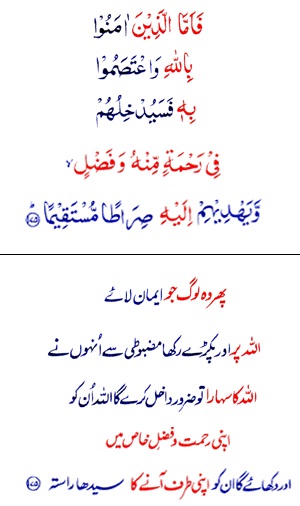 فَاَمَّا الَّذِيْنَ اٰمَنُوْا
بِاللّٰهِ وَاعْتَصَمُوْا
بِهٖ فَسَيُدْخِلُهُمْ
فِىْ رَحْمَةٍ مِّنْهُ وَفَضْلٍ ۙ
وَّيَهْدِيْهِمْ اِلَيْهِ صِرَاطًا مُّسْتَقِيْمًا ؕ ﴿۱۷۵﴾
پھر وہ لوگ جو ایمان لائے
اللہ پر اور پکڑے رکھا مضبوطی سے اُنہوں نے
اللہ کا سہارا تو ضرور داخل کرے گا اللہ اُن کو
اپنی رحمت و فضلِ خاص میں
اور دکھائے گا ان کو اپنی طرف آنے کا سیدھا راستہ ﴿۱۷۵﴾